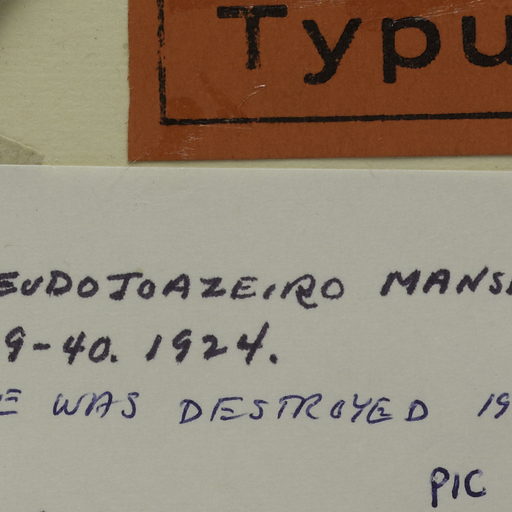 Typu
EUDOJOAZEIRO MANS
9-40. 1924.
E WAS DESTROYED 19
PIC